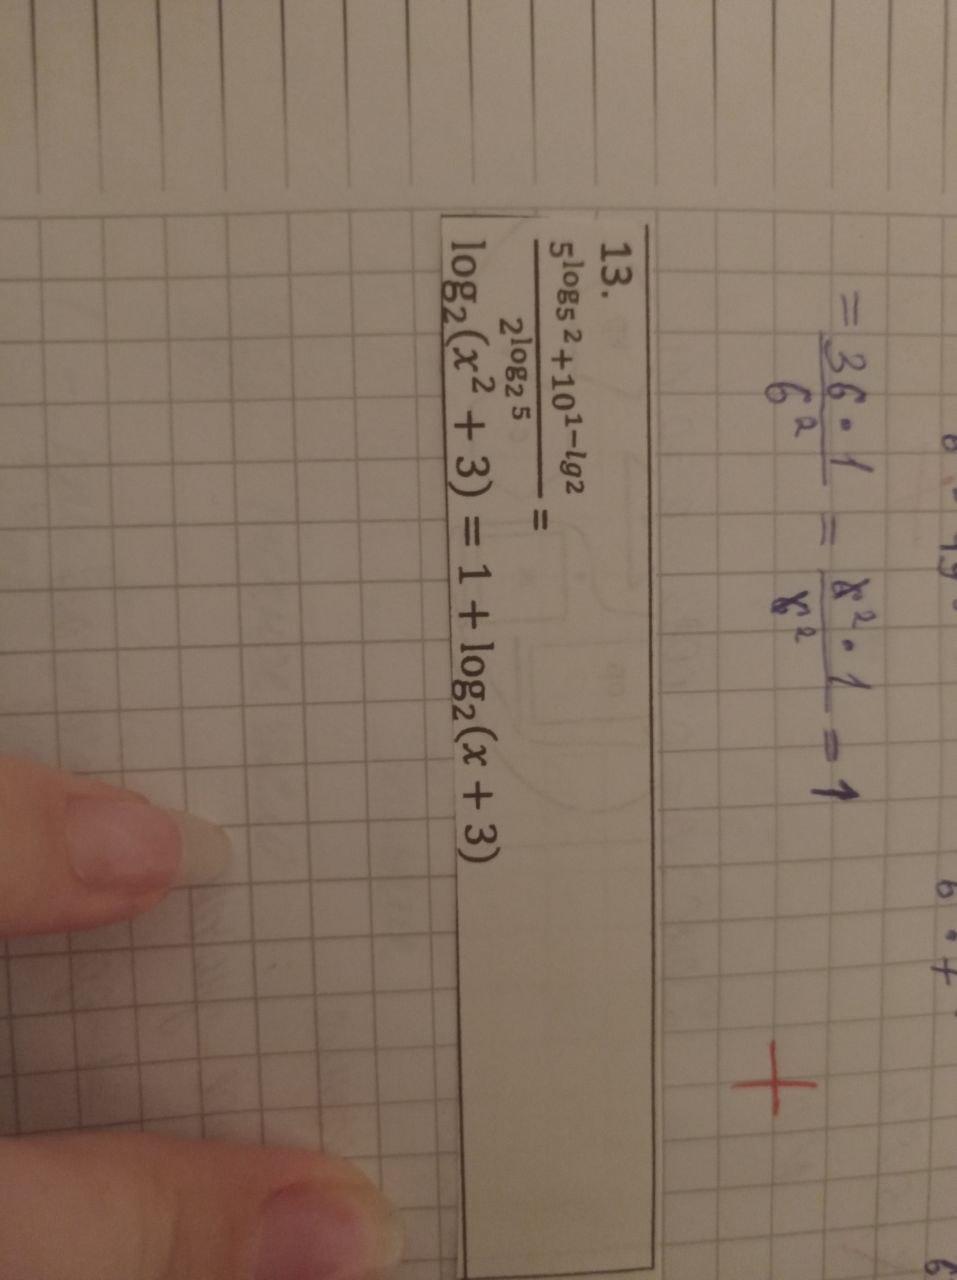 = \frac{36 \cdot 1}{6^2} = \frac{x^2 \cdot 1}{x^2} = 1
13.
\frac{5^{\log_5 2}+10^{1-lg2}}{2^{\log_2 5}} =
\log_2(x^2 + 3) = 1 + \log_2(x + 3)